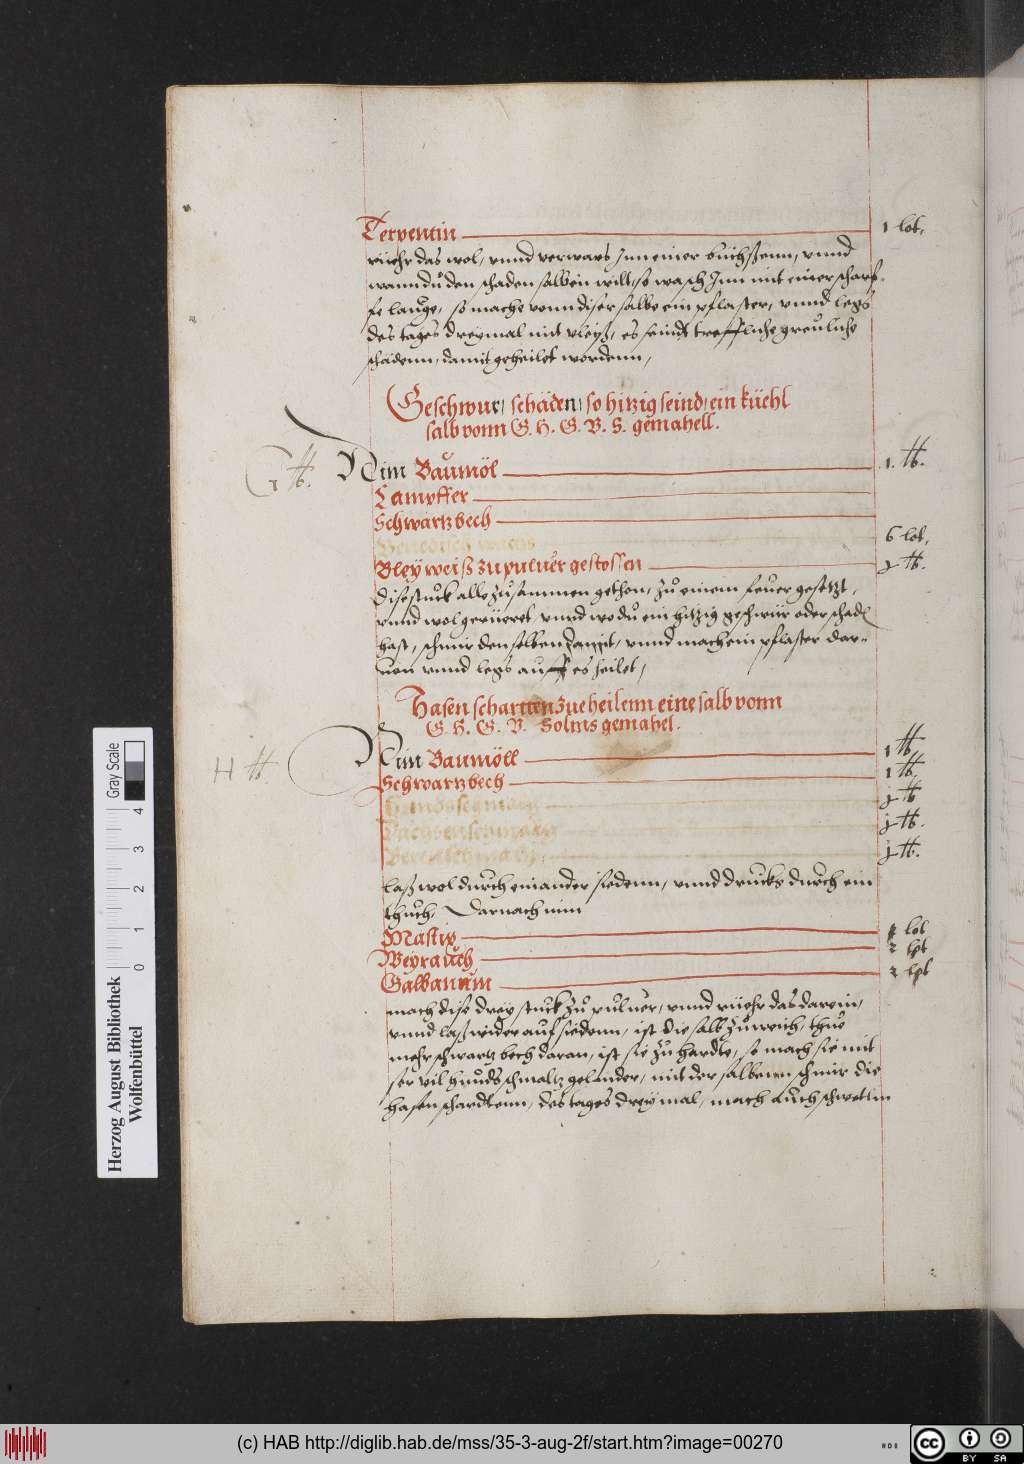 Terpentin 1 lot.
rüehr das wol, vnnd verwars Jnn einer büchßenn, vnnd
wann du den schaden salben wilt, so wasch Jnn mit einer scharf-
fe lauge, so mache vonn diser salbe ein pflaster, vnnd legs
des tages dreymal mit vleyß, es seindt treffliche greuliche
schädenn, damit geheilet wordenn,
Geschwur, schäden, so hitzig seind, ein küehl
salb vonn G. H. G. V. S. gemahell.
Nim Baumöl 1. ℔.
Campffer
Schwartzbech
wachs 6 lot.
Bleyweiß zu puluer gestossen ℔.
Dise stuck alle zusammen gethon, zu einem feuer gesetzt,
vnnd wol gerüeret, vnnd wo du ein hitzig geschwür oder schad
hast, schmir den selben damit, vnnd mach ein pflaster dar-
von vnnd legs auff es heilet,
Hasen scharten zue heilenn eine salb vonn
G. H. G. V. Solms gemahel.
H ℔.
Nim Baumöll 1 ℔
Schwartzbech 1 ℔.
Hundsschmaltz ℔
Dachsenschmaltz ℔.
℔.
laß wol durch einander siedenn, vnnd drucks durch ein
thuch, Darnach nim
Mastix lot
Weyrauch 2 lot
Galbanum 2 lot
mach dise drey stuck zu puluer, vnnd rüehr das darein,
vnnd laß wider auf siedenn, ist die salb zu weich, thue
mehr schwartz bech daran, ist sie zu hardte, so mach sie mit
ser vil hundsschmaltz gelinder, mit der salbenn schmir die
hasen schardtenn, des tages drey mal, mach
Herzog August Bibliothek
Wolfenbüttel
0 1 2 3 4
Gray Scale
(c) HAB http://diglib.hab.de/mss/35-3-aug-2f/start.htm?image=00270
cc BY SA